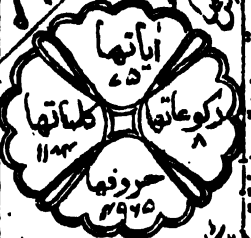 اٰیاتها
۷۵
رکوعاتها
۸
کلماتها
۱۱۸۴
حروفها
۴۹۶۵